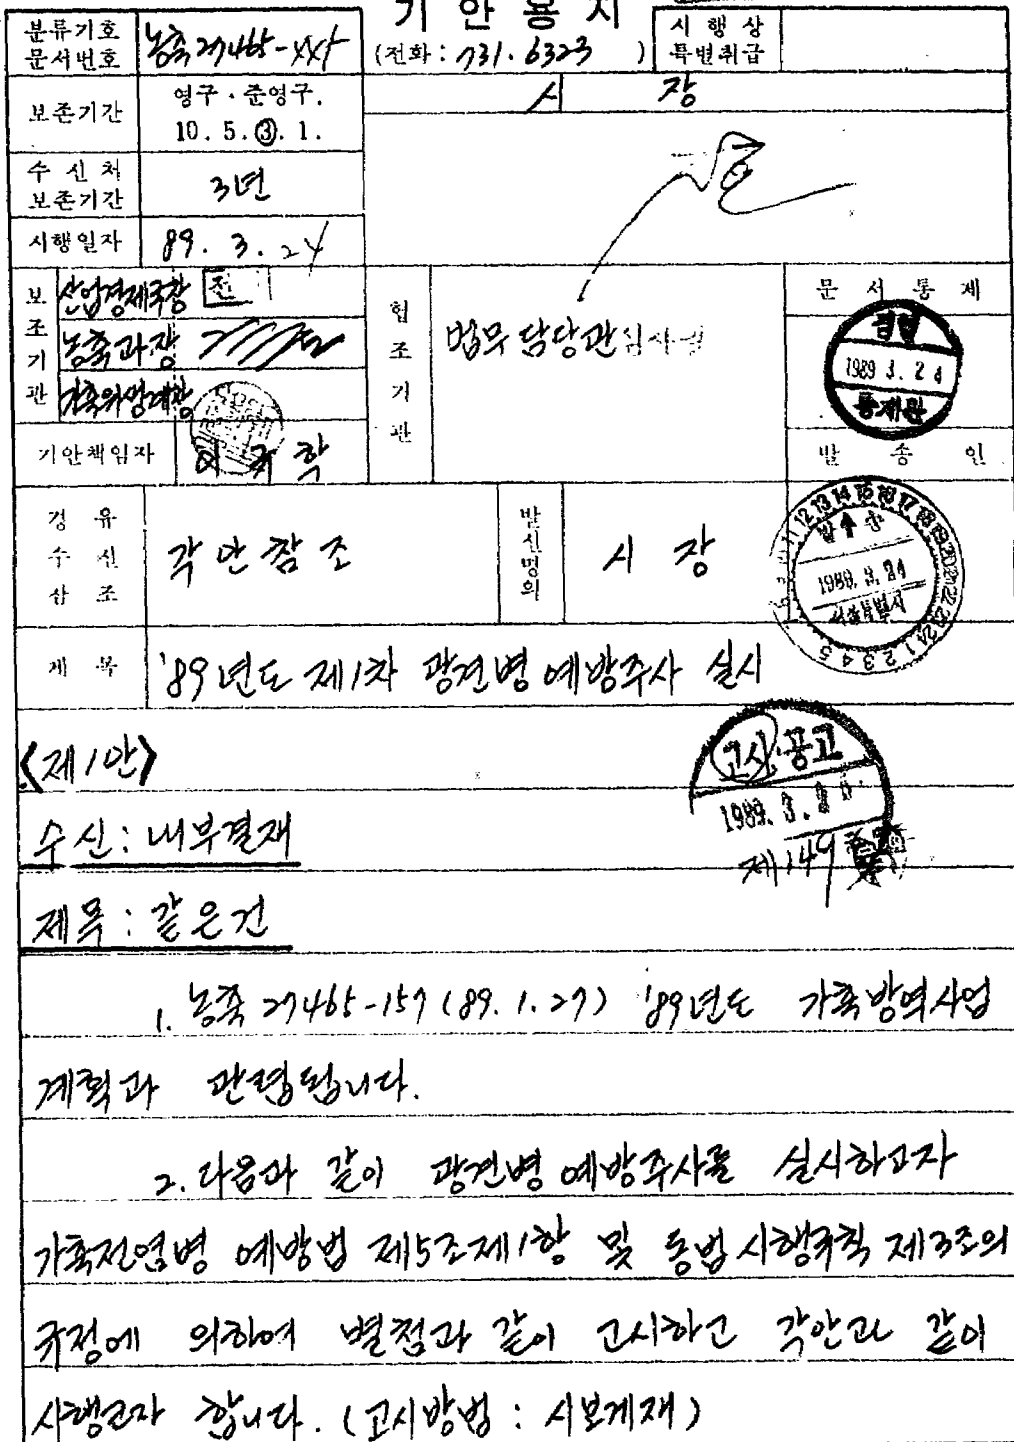 기안용지
분류기호 문서번호 농축27465-
(전화: 731.6323 )
시행상 특별취급
보존기간 영구·준영구. 10. 5. ③. 1.
시 장
수신처 보존기간 3년
시행일자 89. 3. 24
보조기관 산업경제국장 전
농축과장
가축위생계장
기안책임자 이 학
협조기관 법무담당관
문서통제
검열 1989 3. 24 통제관
발송인
발송 1989. 3. 24 서울특별시
경유 수신 참조 각안참조
발신명의 시 장
제목 '89년도 제1차 광견병 예방주사 실시
고시·공고 1989. 3.
제149
<제1안>
수신: 내부결재
제목: 같은건
1. 농축 27465-157 (89. 1. 27) '89년도 가축방역사업
계획과 관련됩니다.
2. 다음과 같이 광견병 예방주사를 실시하고자
가축전염병 예방법 제5조제1항 및 동법시행규칙 제3조의
규정에 의하여 별첨과 같이 고시하고 각안과 같이
시행코자 합니다. (고시방법 : 시보게재)